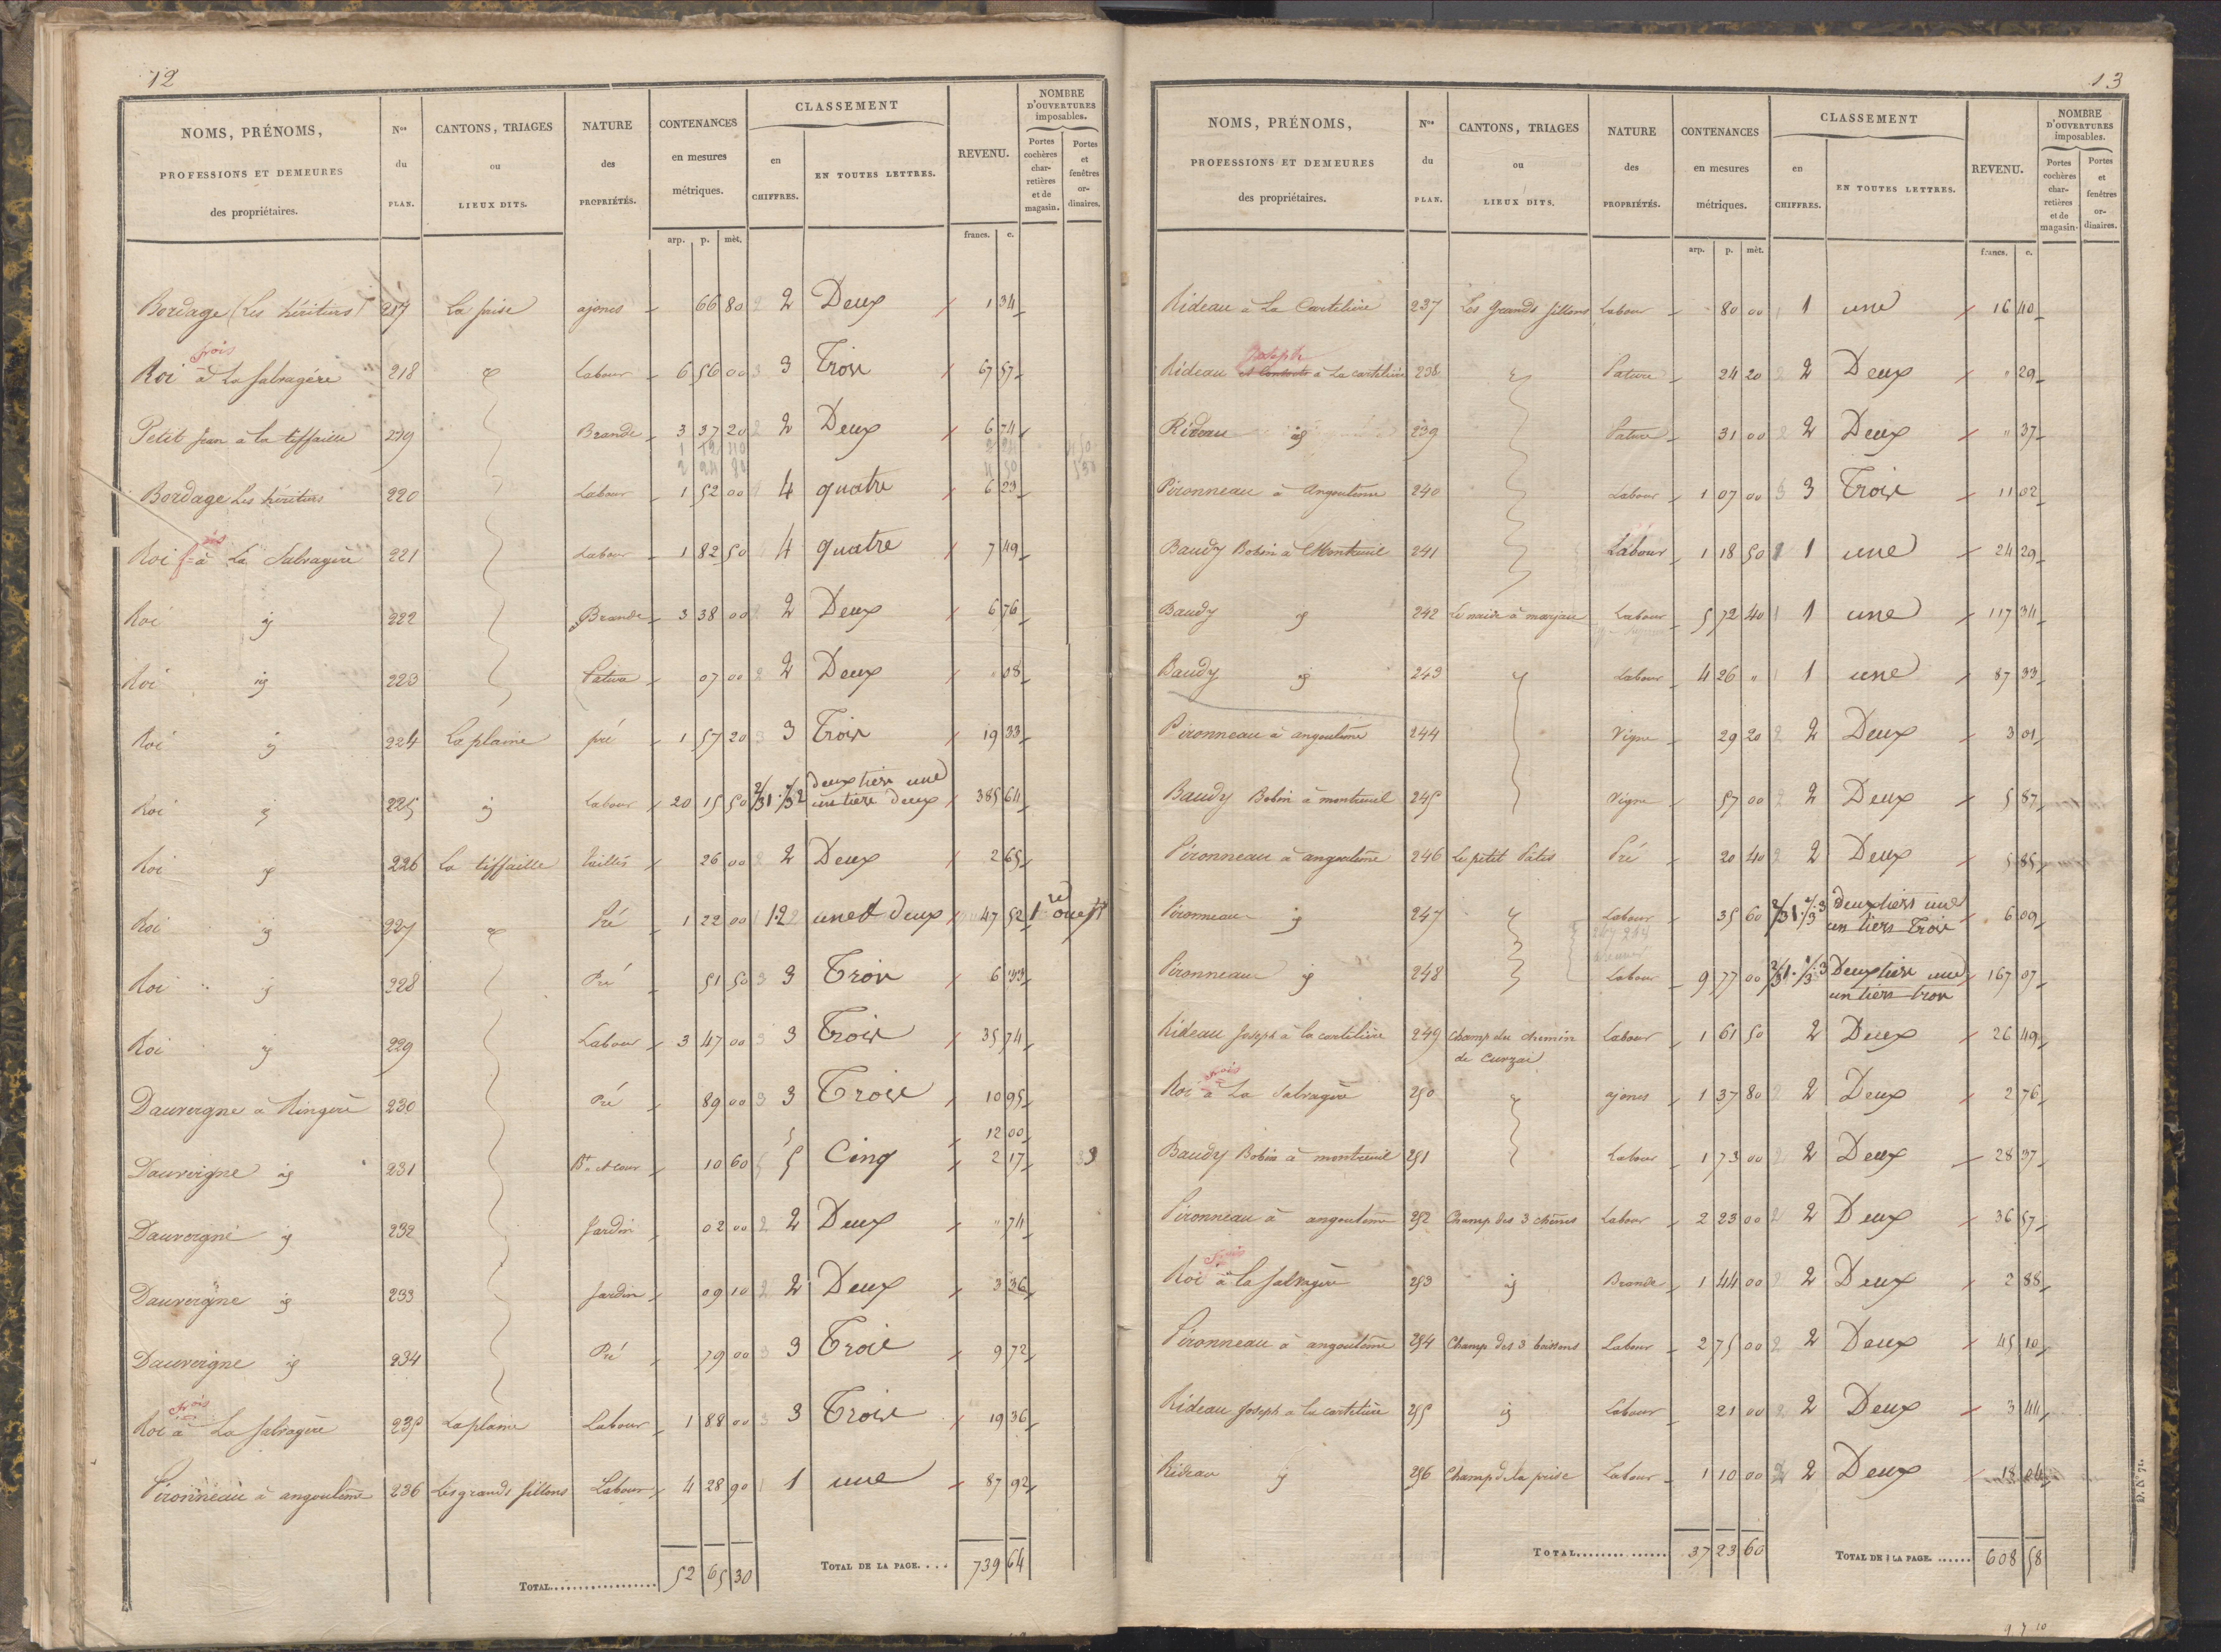 12
NOMS, PRÉNOMS, PROFESSIONS ET DEMEURES des propriétaires. | Nos du PLAN. | CANTONS, TRIAGES ou LIEUX DITS. | NATURE des PROPRIÉTÉS. | CONTENANCES en mesures métriques. | CLASSEMENT en CHIFFRES. | EN TOUTES LETTRES. | REVENU. | NOMBRE D'OUVERTURES imposables. Portes cochères charretières et de magasin. | Portes et fenêtres ordinaires.
arp. p. mèt. francs. c.
Bordage (Les héritiers) 217 La prise ajoncs 66 80 2 Deux 1 34
frois
Roi à La Salvagère 218 id Labour 6 56 00 3 Trois 67 57
Petit Jean à la tiffaille 219 Brande 3 37 20 2 Deux 6 74
Bordage Les héritiers 220 Labour 1 52 00 4 quatre 6 23
Roi à La Salvagère 221 Labour 1 82 50 4 quatre 7 49
Roi id 222 Brande 3 38 00 2 Deux 6 76
Roi id 223 Pature 07 00 2 Deux 08
Roi id 224 La plaine pré 1 57 20 3 Trois 19 33
Roi id 225 id Labour 20 15 50 2/3 1 · 1/3 2 deux tiers une un tiers deux 385 64
Roi id 226 La tiffaille taillis 26 00 2 Deux 2 65
Roi id 227 id Pré 1 22 00 1 2 une et deux 47 52
Roi id 228 Pré 51 50 3 Trois 6 33
Roi id 229 Labour 3 47 00 3 Trois 35 74
Dauvergne à Ringère 230 Pré 89 00 3 Trois 10 95
12 00
Dauvergne id 231 Bt et cour 10 60 5 Cinq 2 17 3
Dauvergne id 232 Jardin 02 00 2 Deux " 74
Dauvergne id 233 Jardin 09 10 2 Deux 3 36
Dauvergne id 234 Pré 79 00 3 Trois 9 72
frois
Roi à La Salvagère 235 La plaine Labour 1 88 00 3 Trois 19 36
Pironneau à angoulème 236 Les grands sillons Labour 4 28 90 1 une 87 92
TOTAL 52 65 30 TOTAL DE LA PAGE.... 739 64
13
NOMS, PRÉNOMS, PROFESSIONS ET DEMEURES des propriétaires. | Nos du PLAN. | CANTONS, TRIAGES ou LIEUX DITS. | NATURE des PROPRIÉTÉS. | CONTENANCES en mesures métriques. | CLASSEMENT en CHIFFRES. | EN TOUTES LETTRES. | REVENU. | NOMBRE D'OUVERTURES imposables. Portes cochères charretières et de magasin. | Portes et fenêtres ordinaires.
arp. p. mèt. francs. c.
Rideau à La Cartelière 237 Les Grands sillons Labour 80 00 1 une 16 40
Joseph
Rideau à La cartelière 238 id Pature 24 20 2 Deux " 29
Rideau id 239 Pature 31 00 2 Deux " 37
Pironneau à Angoulème 240 Labour 1 07 00 3 Trois 11 02
Baudy Bobin à Montreuil 241 Labour 1 18 50 1 une 24 29
Baudy id 242 Labour 5 72 40 1 une 117 34
Baudy id 243 id Labour 4 26 " 1 une 87 33
Pironneau à angoulème 244 Vigne 29 20 2 Deux 3 01
Baudy Bobin à montreuil 245 Vigne 57 00 2 Deux 5 87
Pironneau à angoulème 246 Le petit Patis Pré 20 40 2 Deux 5 85
Pironneau id 247 id Labour 35 60 2/3 1 · 1/3 3 deux tiers une un tiers Trois 6 09
Pironneau id 248 Labour 9 77 00 2/3 1 · 1/3 3 Deux tiers une un tiers trois 167 07
Rideau Joseph à la cartelière 249 Champ du chemin de Curzai Labour 1 61 50 2 Deux 26 49
frois
Roi à La Salvagère 250 id ajoncs 1 37 80 2 Deux 2 76
Baudy Bobin à montreuil 251 Labour 1 73 00 2 Deux 28 37
Pironneau à angoulème 252 Champ des 3 chênes Labour 2 23 00 2 Deux 36 57
frois
Roi à la Salvagère 253 id Brande 1 44 00 2 Deux 2 88
Pironneau à angoulème 254 Champ des 3 buissons Labour 2 75 00 2 Deux 45 10
Rideau Joseph à la cartelière 255 id Labour 21 00 2 Deux 3 44
Rideau id 256 Champ de la prise Labour 1 10 00 2 Deux 18 04
TOTAL 37 23 60 TOTAL DE LA PAGE. 608 58